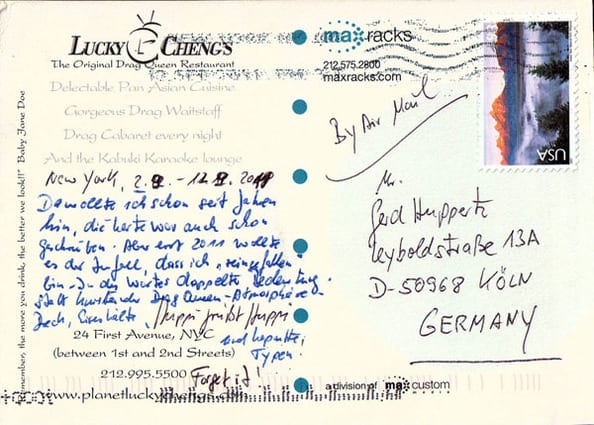 LUCKY CHENG'S
The Original Drag Queen Restaurant
Delectable Pan Asian Cuisine
Gorgeous Drag Waitstaff
Drag Cabaret every night
And the Kabuki Karaoke lounge
New York,
Da wollte ich schon seit Jahren
hin, die Karte war auch schon
geschrieben. Aber erst 2011 wollte
es der Zufall, dass ich "reingefallen"
bin - in des Wortes doppelter Bedeutung.
statt Drag Queen-Atmosphäre -
Dreck, Eiseskälte,
und kaputte
Typen.
Forget it!
24 First Avenue, NYC
(between 1st and 2nd Streets)
212.995.5500
www.planetluckychengs.com
Remember, the more you drink, the better we look!!" Baby Jane Doe
maxracks
212.575.2800
maxracks.com
By Air Mail
USA
Mr.
Gerd Huppertz
Leyboldstraße 13A
D-50968 KÖLN
GERMANY
a division of max custom